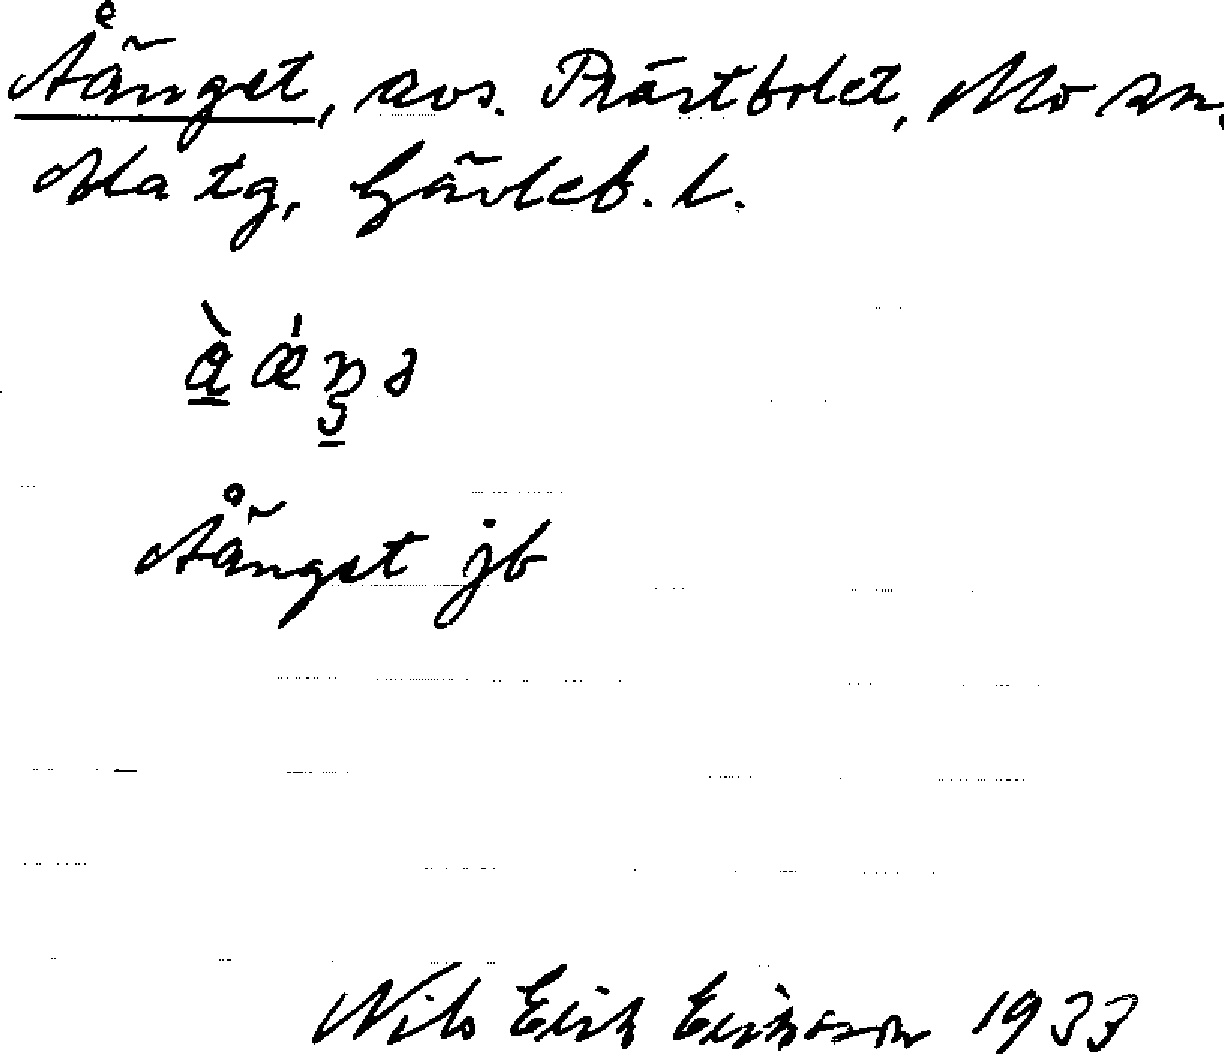 Åänget, avs. Prästbolet, Mo sn.
Ala tg, Gävleb. l.
Åänget jb
Nils Erik Eriksson 1933